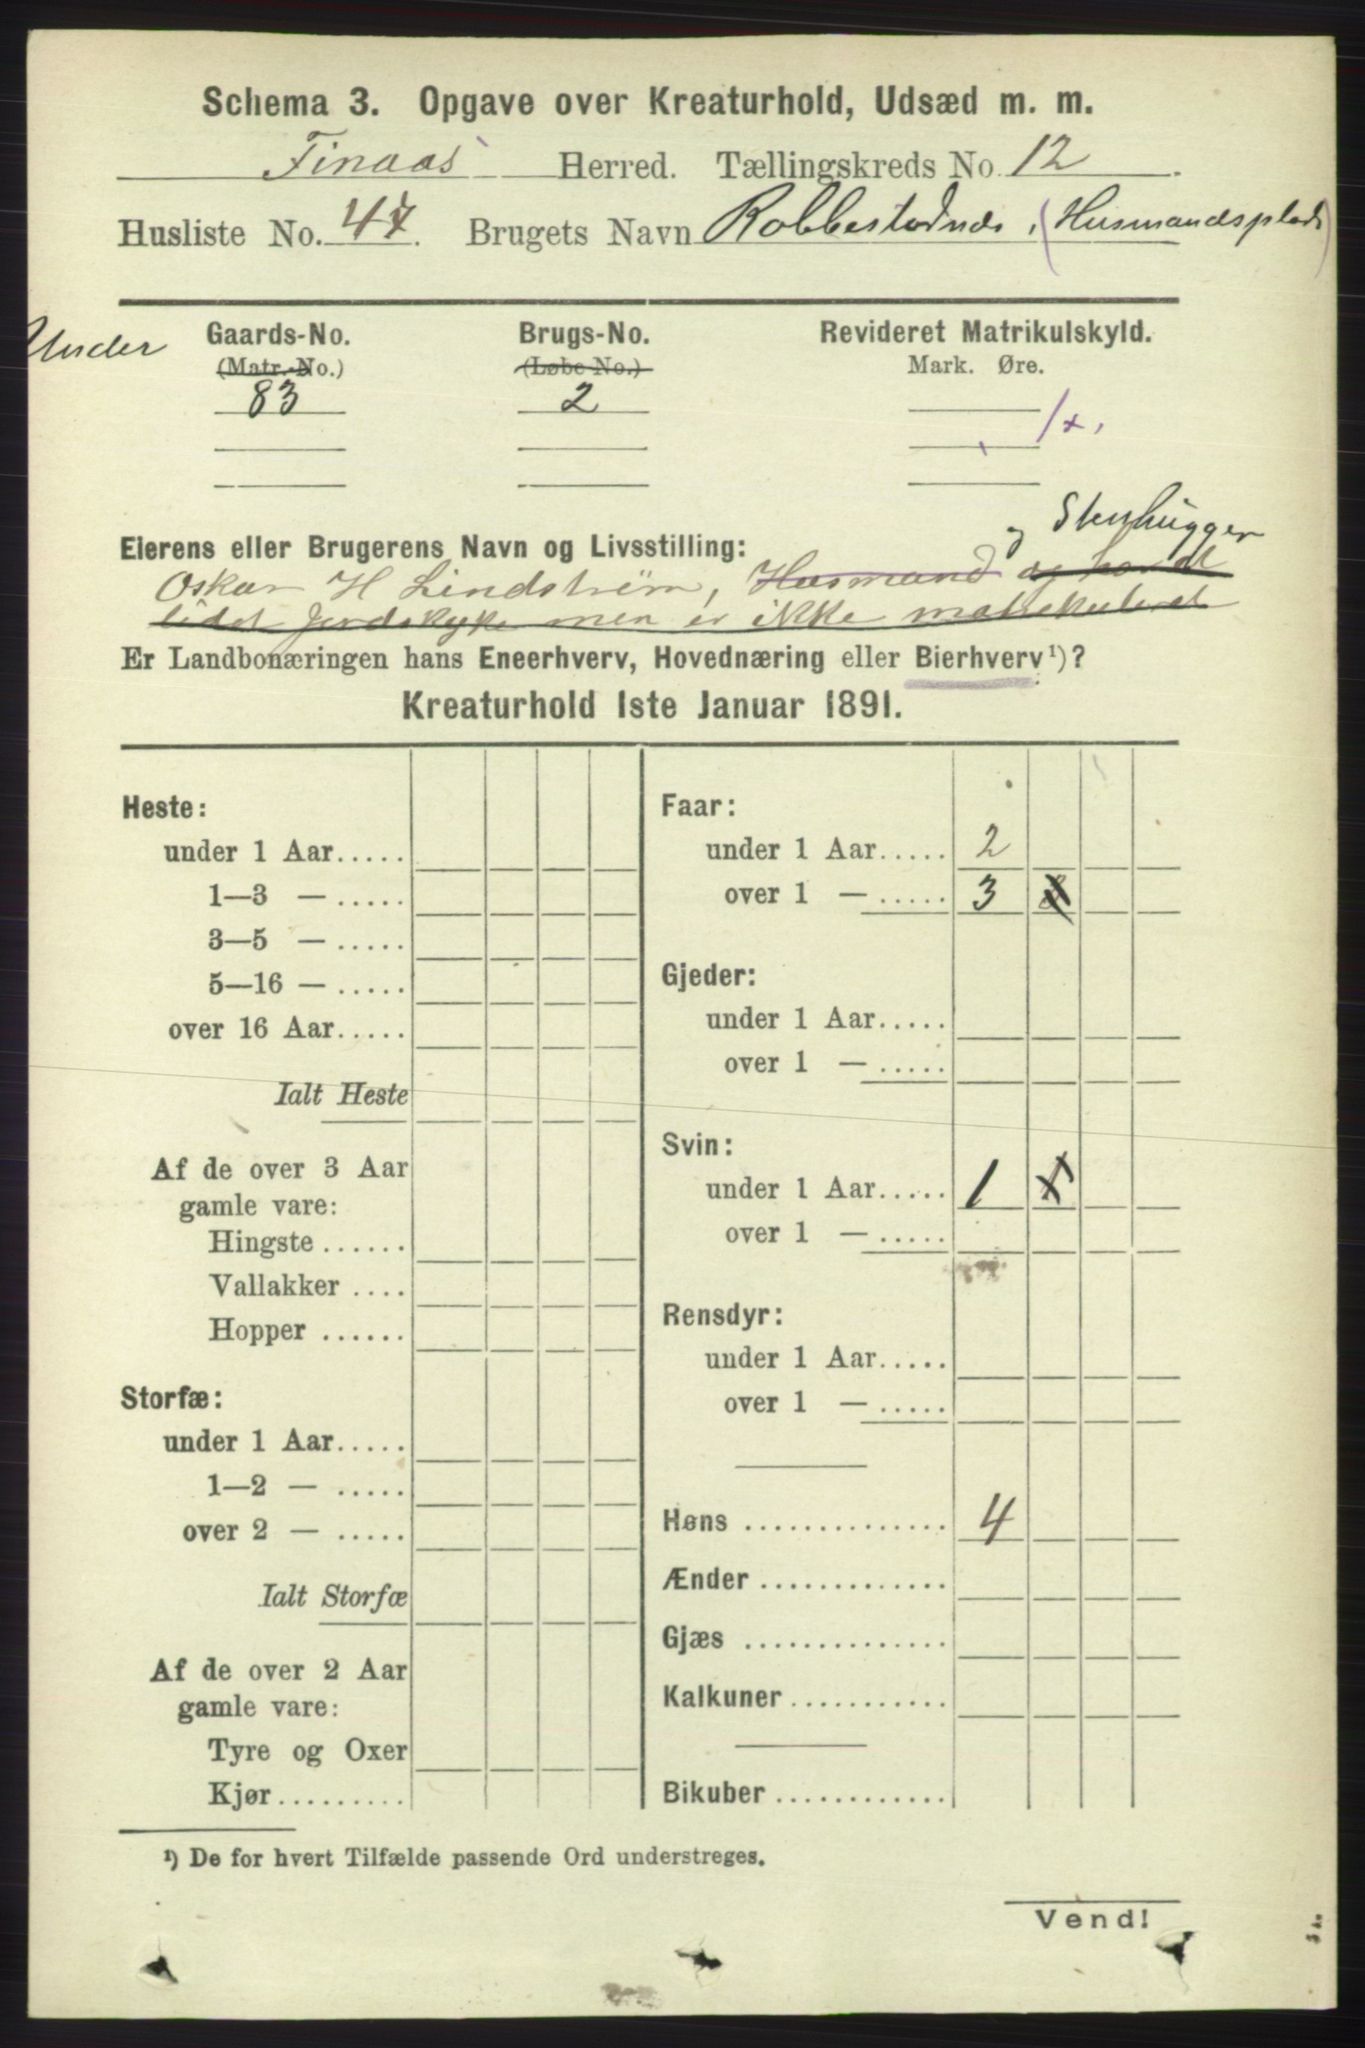 Schema 3. Opgave over Kreaturhold, Udsæd m. m.
Finaas Herred. Tællingskreds No. 12.
Husliste No. 47. Brugets Navn (Husmandsplads)
Under
Gaards-No. Brugs-No. Revideret Matrikulskyld.
(Matr.-No.) (Løbe-No.) Mark. Øre.
83 2
og Stenhugger
Eierens eller Brugerens Navn og Livsstilling:
Oskar H Lindstrøm, Husmand og har et
lidet Jordstykke men er ikke matrikuleret
Er Landbonæringen hans Eneerhverv, Hovednæring eller Bierhverv¹)?
Kreaturhold 1ste Januar 1891.
Heste:
under 1 Aar.....
1—3 — .....
3—5 — .....
5—16 — .....
over 16 Aar.....
Ialt Heste
Af de over 3 Aar
gamle vare:
Hingste......
Vallakker ....
Hopper ......
Storfæ:
under 1 Aar.....
1—2 — .....
over 2 — .....
Ialt Storfæ
Af de over 2 Aar
gamle vare:
Tyre og Oxer
Kjør.........
Faar:
under 1 Aar..... 2
over 1 — ..... 3
Gjeder:
under 1 Aar.....
over 1 — .....
Svin:
under 1 Aar..... 1
over 1 — .....
Rensdyr:
under 1 Aar.....
over 1 — .....
Høns .............. 4
Ænder .............
Gjæs ..............
Kalkuner...........
Bikuber ............
¹) De for hvert Tilfælde passende Ord understreges.
Vend!